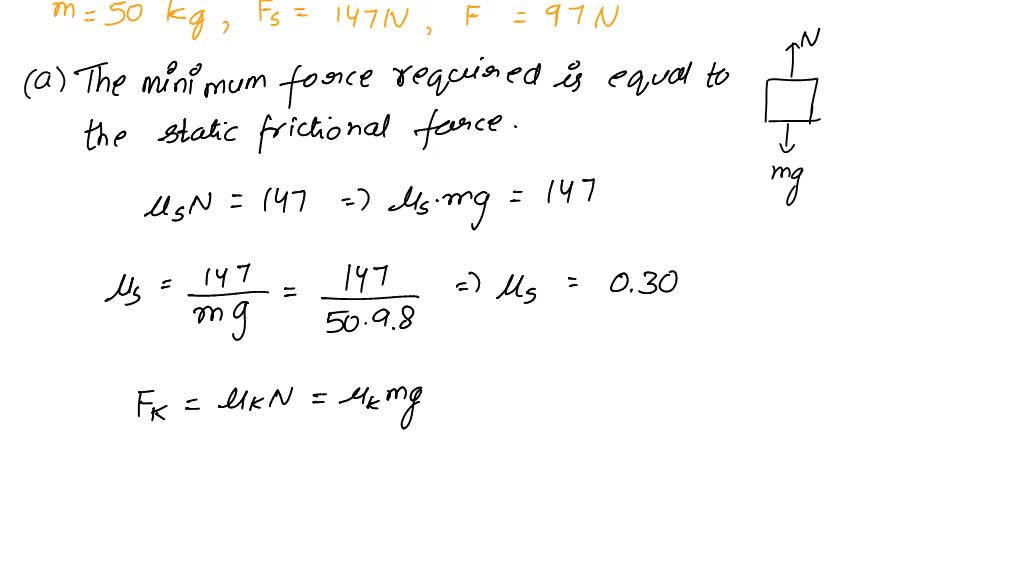 m = 50 kg, Fs = 147N, F = 97N
(a) The minimum force required is equal to
the static frictional force.
N
mg
μsN = 147 => μs·mg = 147
μs = 147/mg = 147/50·9.8 => μs = 0.30
FK = μKN = μKmg